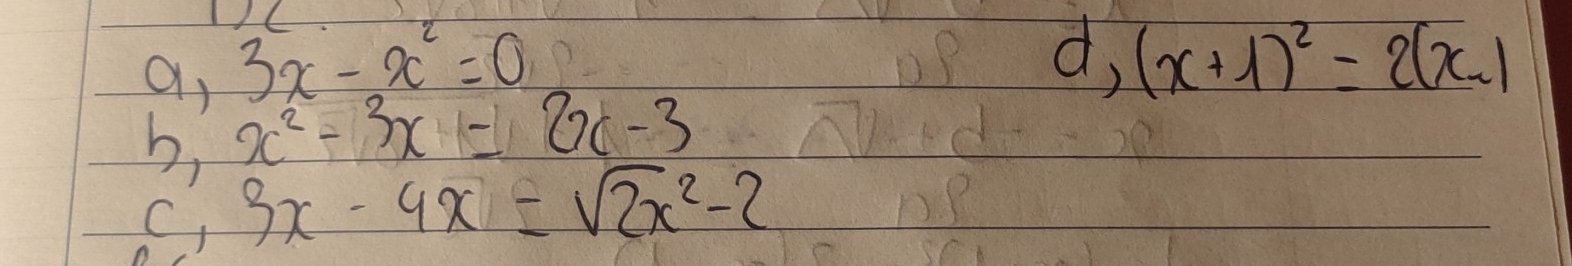 a, 3x - x² = 0
d, (x+1)² = 2(x-1
b, x² - 3x = 2x - 3
c, 3x - 4x = √2x² - 2